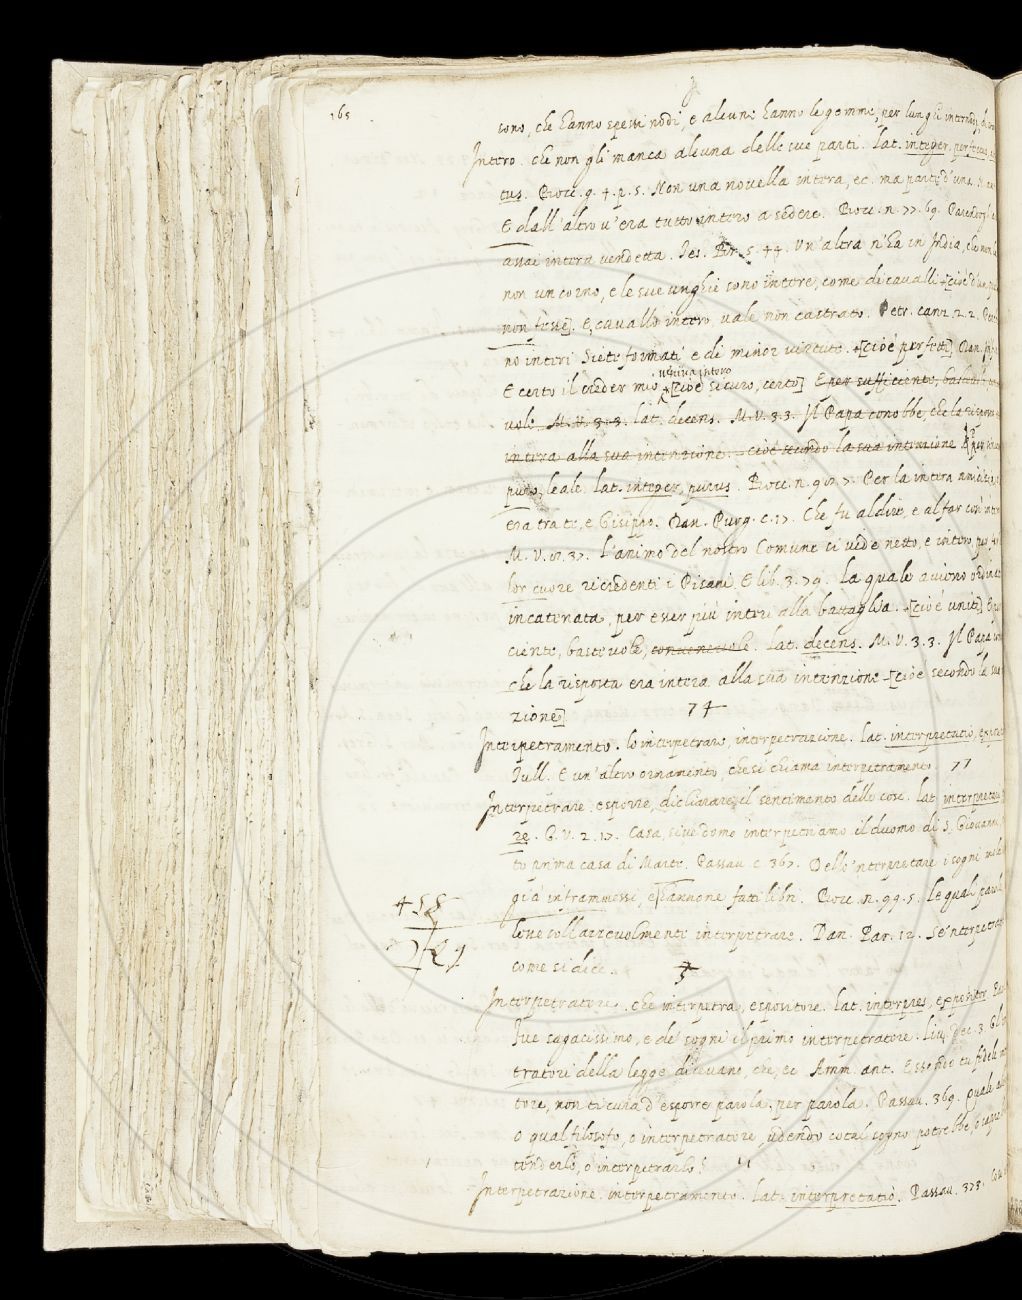 165
sono, che hanno spessi nodi, e alcune hanno le gemme, per lunghi internodj,
Intero. che non gli manca alcuna delle sue parti. Lat. integer, perfectus,
tus. Bocc. g. 4. p. 5. Non una novella intera, ec. ma parte d'una.
E dall'altro v'era tutto intero a sedere. Bocc. n. 77. 69.
assai intera vendetta. Tes. Br. 5. 44. Un'altra n'ha in India, che non
non un corno, e le sue unghie sono intere, come di cavalli [cioè
non fesse]. E, cavallo intero, vale non castrato. Petr. canz. 2. 2.
no interi Siete formati e di minor virtute. [cioè perfetti] Dan.
E certo il creder mio veniva intero [cioè sicuro, certo] E per sufficiente,
vole M. V. 3. 3. lat. decens. M. V. 3. 3. Il Papa conobbe, che la risposta
intera alla sua intenzione. cioè secondo la sua intenzione E per
puro, leale. lat. integer, purus. Bocc. n. 98. 7. Per la intera amicizia,
era tra te, e Gisippo. Dan. Purg. c. 17. Che, fu al dire, e al far così intero
M. V. 8. 37. L'animo del nostro Comune si vede netto, e intero, per
lor cuore ricredenti i Pisani E lib. 3. 79. La quale avieno ordinata
incatenata, per esser più interi alla battaglia. [cioè uniti]
ciente, bastevole, convenevole. Lat. decens. M. V. 3. 3. Il Papa
che la risposta era intera alla sua intenzione [cioè secondo la sua
zione]
74
Interpetramento. lo interpetrare, interpetrazione. Lat. interpretatio,
Tull. E un'altro ornamento, che si chiama interpetramento 77
Interpetrare. esporre, dichiarare il sentimento delle cose. Lat. interpretari
re. G. V. 2. 17. Casa, si ve domo interpetriamo il duomo di S. Giovanni,
to prima casa di Marte. Passav. c. 367. Dello 'nterpretare i sogni
già intrammessi, e hannone fatti libri. Bocc. n. 99. 5. Le quali parole
lone sollazzevolmente interpetrare. Dan. Par. 12. Se 'nterpretata
come si dice.
Interpetratore. che interpetra, espositore. Lat. interpres, expositor
Fue sagacissimo, e de' sogni il primo interpetratore. Liv. dec. 3.
tratori della legge dicevano, che, ec Amm. ant. Essendo tu fedele
tore, non ti cura d'esporre parola, per parola. Passav. 369. Quale
o qual filosofo, o interpetratore, udendo cotal sogno potrebbe, o saprebbe
tenderlo, o interpetrarlo?
Interpetrazione. interpetramento. Lat. interpretatio. Passav. 373.